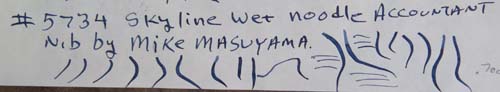 # 5734 Skyline wet noodle ACCOUNTANT
Nib by MIKE MASUYAMA.